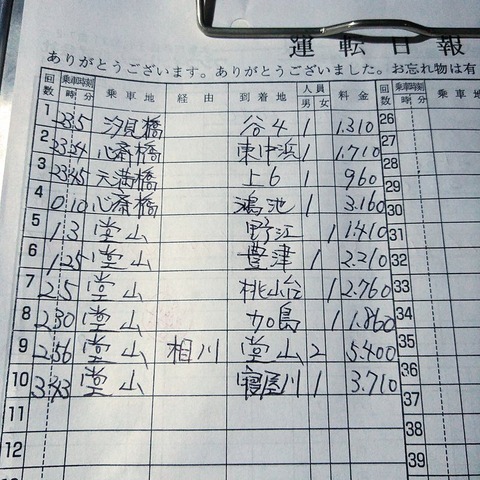 運転日報
ありがとうございます。ありがとうございました。お忘れ物は有
回数 乗車時刻 時 分 乗車地 経由 到着地 人員 男 女 料金 回数 乗車地
1 23 5 汐見橋 谷4 1 1.310 26
2 23 24 心斎橋 東中浜 1 1.710 27
3 23 45 天満橋 上6 1 960 28
4 0 10 心斎橋 鴻池 1 3.160 29
5 1 3 堂山 野江 1 1.410 30
6 1 25 堂山 豊津 1 2.210 31
7 2 5 堂山 桃山台 1 2.760 32
8 2 30 堂山 加島 1 1.860 33
9 2 56 相川 堂山 2 5.400 34
10 3 43 堂山 寝屋川 1 3.710 35
11 36
12 37
38
39